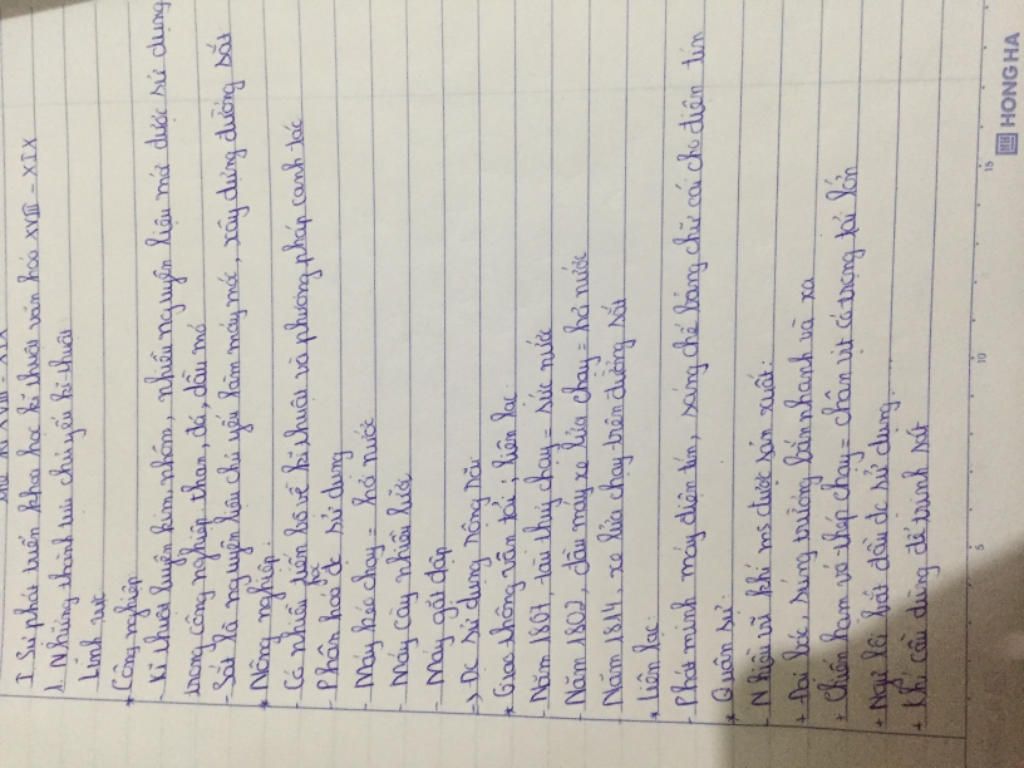 THẾ KỈ XVIII - XIX
I Sự phát triển khoa học kĩ thuật văn hóa XVIII - XIX
1. Những thành tựu chủ yếu kĩ thuật
Lĩnh vực
* Công nghiệp
- Kĩ thuật luyện kim, nhôm, nhiều nguyên liệu mới được sử dụng
trong công nghiệp than, đá, dầu mỏ
- Sắt là nguyên liệu chủ yếu làm máy móc, xây dựng đường sắt
* Nông nghiệp
- Có nhiều tiến bộ về kĩ thuật và phương pháp canh tác
- Phân hoá học đc sử dụng
- Máy kéo chạy = hơi nước
- Máy cày nhiều lưỡi
- Máy gặt đập
-> Đc sử dụng rộng rãi
* Giao thông vận tải, liên lạc:
- Năm 1807, tàu thuỷ chạy = sức nước
- Năm 1802, đầu máy xe lửa chạy = hơi nước
- Năm 1814, xe lửa chạy trên đường sắt
* Liên lạc:
- Phát minh máy điện tín, sáng chế bảng chữ cái cho điện tín
* Quân sự:
- Nhiều vũ khí ms được sản xuất:
+ Đại bác, súng trường bắn nhanh và xa
+ Chiến hạm vỏ thép chạy = chân vịt có trọng tải lớn
+ Ngư lôi bắt đầu đc sử dụng
+ Khí cầu dùng để trinh sát
5 10 15
HONG HA